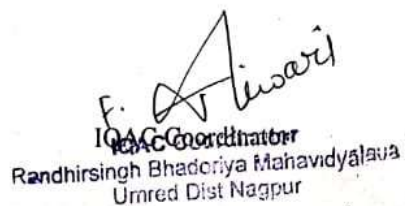 F. A Tiwari
IQAC Coordinator
Randhirsingh Bhadoriya Mahavidyalaya
Umred Dist Nagpur